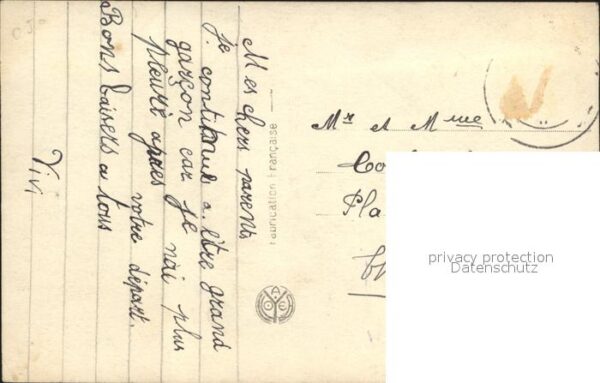 Mes chers parents
je continue a être grand
garçon car je nài plus
pleuré apres votre départ.
Bons baisers a tous
Vivi
Fabrication Française
Mr et Mme
Pla
privacy protection
Datenschutz